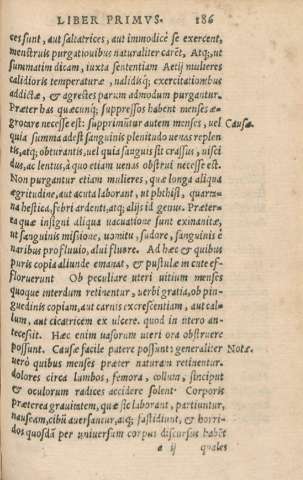 LIBER PRIMVS. 186
ces sunt, aut saltatrices, aut immodicè se exercent,
menstruis purgationibus naturaliter carēt, Atq;, ut
summatim dicam, iuxta sententiam Aetij mulieres
calidioris temperaturæ, ualidisq; exercitationibus
addictæ, & agrestes parum admodum purgantur.
Præter has quæcunq; suppressos habent menses æ-
grotare necesse est: supprimūtur autem menses, uel Causæ.
quia summa adest sanguinis plenitudo uenas replen
tis, atq; obturantis, uel quia sanguis sit crassus, uisci
dus, ac lentus, à quo etiam uenas obstrui necesse est.
Non purgantur etiam mulieres, quæ longa aliqua
ægritudine, aut acuta laborant, ut phthisi, quarta-
na hectica, febri ardenti, atq; alijs id genus. Præter-
ea quæ insigni aliqua uacuatione sunt exinanitæ,
ut sanguinis missione, uomitu, sudore, sanguinis è
naribus profluuio, alui fluore. Ad hæc & quibus
puris copia aliunde emanat, & pustulæ in cute ef-
floruerunt Ob peculiare uteri uitium menses
quoque interdum retinentur, uerbi gratia, ob pin-
guedinis copiam, aut carnis excrescentiam, aut cal-
lum, aut cicatricem ex ulcere, quod in utero an-
tecessit. Hæc enim uasorum uteri ora obstruere
possunt. Causæ facile patere possunt: generaliter Notæ.
uero quibus menses præter naturam retinentur,
dolores circa lumbos, femora, collum, sinciput
& oculorum radices accidere solent. Corporis
præterea grauitatem, quæ sic laborant, patiuntur,
nauseam, cibū auersantur, atq; fastidiunt, & horri-
dos quosdā per uniuersum corpus discursus habēt
a ij quales